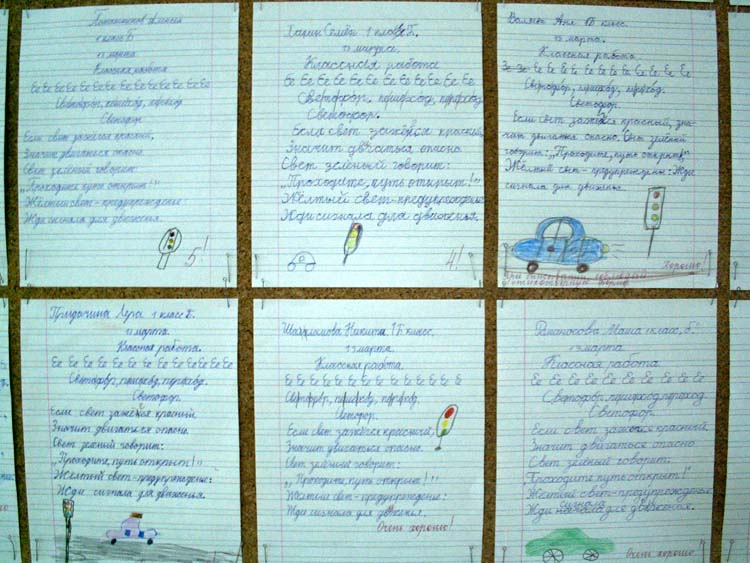 1 класс Б
13 марта
Классная работа
Ее Ее Ее Ее Ее Ее Ее Ее Ее Ее Ее
Светофор, пешеход, переход
Светофор
Если свет зажёгся красный,
Значит двигаться опасно.
Свет зелёный говорит:
„Проходите, путь открыт!"
Жёлтый свет-предупреждение:
Жди сигнала для движения.
5!
Харин Семён 1 класс Б.
13 марта.
Классная работа
Ее Ее Ее Ее Ее Ее Ее Ее Ее Ее
Светофор. пешеход, переход
Светофор.
Если свет зажёгся красный,
Значит двигаться опасно
Свет зелёный говорит:
"Проходите, путь открыт!"
Жёлтый свет-предупреждение
Жди сигнала для движенья.
4!
Аня 1Б класс.
13 марта.
Классная работа.
Ее Ее Ее Ее Ее Ее Ее Ее Ее
Светофор, пешеход, переход.
Светофор.
Если свет зажёгся красный, зна-
чит двигатся опасно. Свет зелёный
говорит: „Проходите, путь открыт!"
Жёлтый свет - предупреждение: Жди
сигнала для движенья.
Хорошо!
При списывании соблюдай
стихотворную форму
Лера 1 класс Б.
13 марта.
Классная работа.
Ее Ее Ее Ее Ее Ее Ее Ее Ее Ее Ее Ее
Светофор, пешеход, переход.
Светофор.
Если свет зажёгся красный
Значит двигаться опасно.
Свет зелёный говорит:
„Проходите, путь открыт!"
Жёлтый свет-предупреждение:
Жди сигнала для движения.
Никита 1 Б класс.
13 марта.
Классная работа.
Ее Ее Ее Ее Ее Ее Ее Ее Ее Ее Ее Ее
Светофор, пешеход, переход.
Светофор.
Если свет зажёгся красный,
Значит двигаться опасно.
Свет зелёный говорит:
„Проходите, путь открыт!"
Жёлтый свет-предупреждение:
Жди сигнала для движения.
Очень хорошо!
Романосова Маша 1 класс „Б."
13 марта
Классная работа
Ее Ее Ее Ее Ее Ее Ее Ее Ее Ее
Светофор, пешеход, переход
Светофор.
Если свет зажёгся красный
Значит двигаться опасно
Свет зелёный говорит.
Проходите путь открыт!"
Жёлтый свет-предупреждение
Жди сигнала для движения.
Очень хорошо